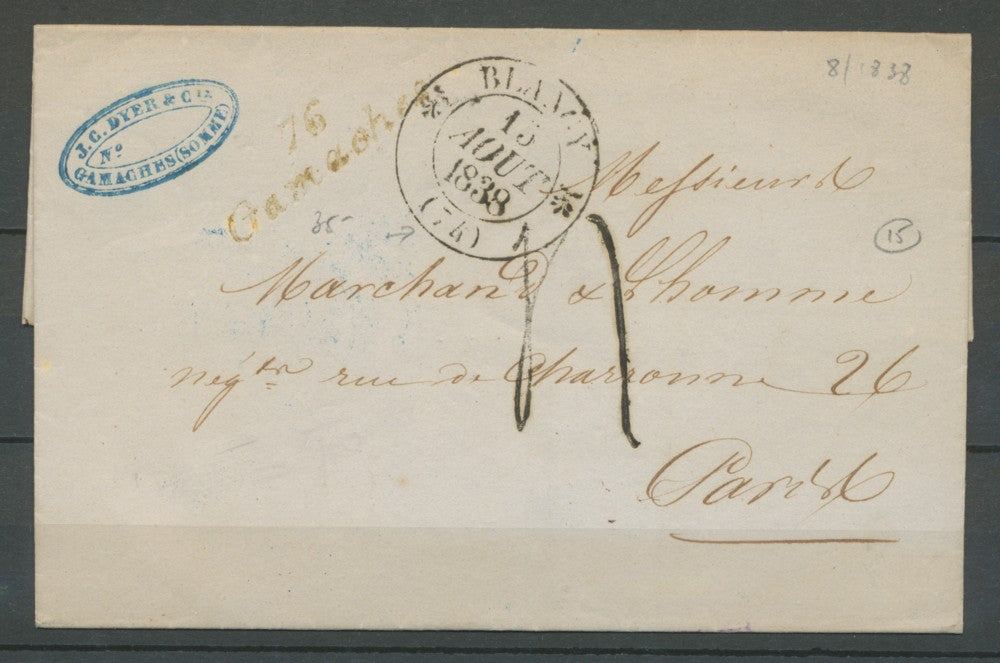 J. C. DYER & Cie
No
GAMACHES (SOMME)
76
Gamaches
BLANGY
15
AOUT
1838
(74)
8/1838
35-
15
Messieurs
Marchand & Lhomme
négts rue de Charronne 26
Paris